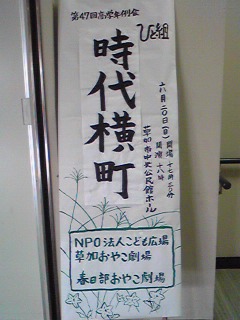 第47回高学年例会
ひと組
時代横町
十八月二〇日(日)開場十七時三〇分
開演十八時
草加市中央公民館ホール
NPO法人こども広場
草加おやこ劇場
春日部おやこ劇場